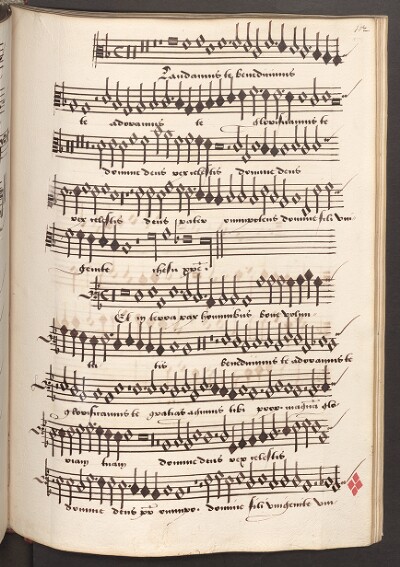 112
Laudamus te benedicimus
te adoramus te glorificamus te
domine deus rex celestis domine deus
rex celestis deus pater omnipotens domine fili uni
genite ihesu
Et in terra pax hominibus bone volun
ta tis benedicimus te adoramus te
glorificamus te gratias agimus tibi glo
riam tuam domine deus rex celestis
domine deus domine fili unigenite